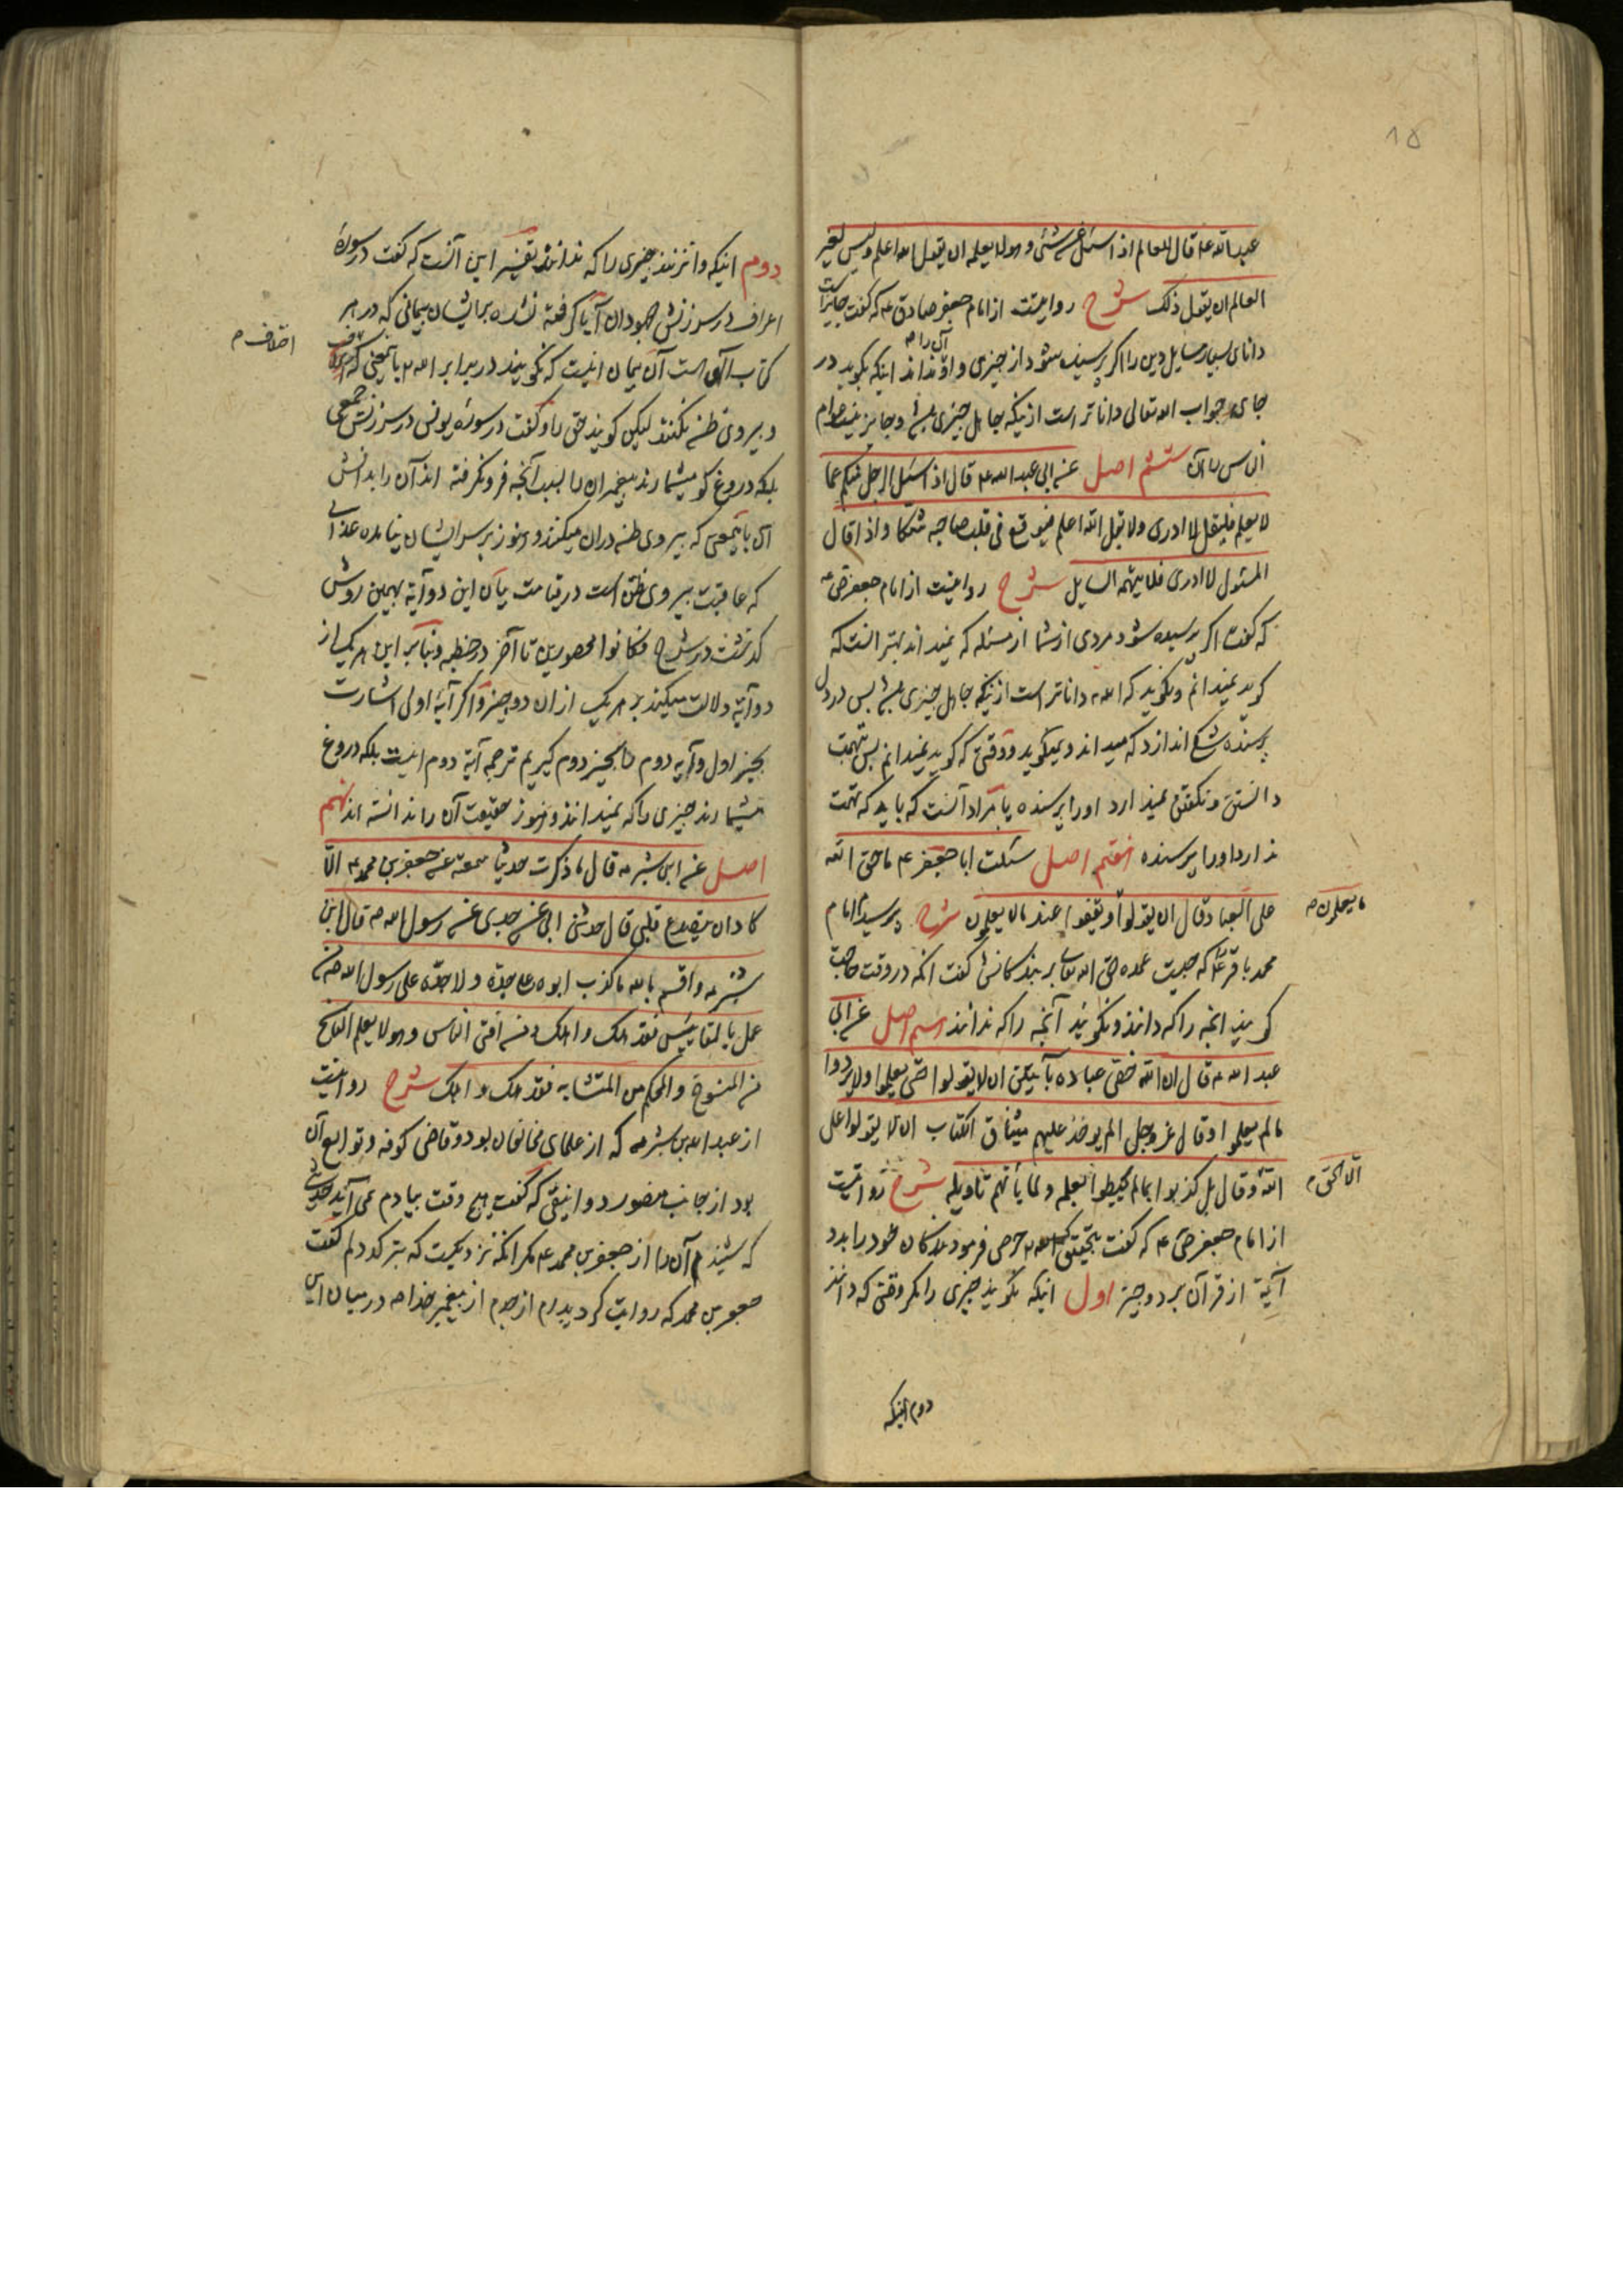 عبد الله ع قال للعالم اذا سئل عن شئ و هو لا يعلمه ان يقول الله اعلم و ليس لغير
العالم ان يقول ذلك شرح روايتست از امام جعفر صادق ع كه گفت جايز است
داناى بسيار مسايل دين را اگر پرسيده شود از چيزى و او نداند اينكه بگويد در
آن را م
جاى جواب الله تعالى داناتر است ازينكه جاهل چيزى و جايز نيست عوام
الناس را آن ششم اصل عن ابى عبد الله ع قال اذا سئل الرجل منكم عما
لا يعلم فليقل لا ادرى و لا يقل الله اعلم فيوقع فى قلب صاحبه شكا و اذا قال
المسئول لا ادرى فلا يتهمه السايل شرح روايتست از امام جعفر ص ع
كه گفت اگر پرسيده شود مردى از شما از مسئله كه نميداند بهتر آنست كه
گويد نميدانم و نگويد كه الله داناتر است ازينكه جاهل چيزى پس در دل
پرسنده شك اندازد كه ميداند و نميگويد و وقتى كه گويد نميدانم پس تهمت
دانستن و نگفتن نميدارد او را پرسنده يا مراد آنست كه بايد كه تهمت
ندارد او را پرسنده هفتم اصل سئلت ابا جعفر ع ما حق الله
على العباد قال ان يقولوا و يقفوا عند ما لا يعلمون شرح پرسيدم امام
ما يعلمون م
محمد باقر ع كه چيست عمده حق الله تعالى بر بندگانش گفت آنكه در وقت حاجت
گويند آنچه را كه دانند و نگويند آنچه را كه ندانند اصل عن ابى
عبد الله ع قال ان الله خص عباده بآيتين ان لا يقولوا حتى يعلموا و لا يردوا
ما لم يعلموا و قال عز و جل الم يوخذ عليهم ميثاق الكتاب ان لا يقولوا على
الله و قال بل كذبوا بما لم يحيطوا بعلمه و لما ياتهم تاويله شرح روايتست
الا الحق م
از امام جعفر ص ع كه گفت بتحقيق كه الله حرص فرمود بندگان خود را بدو
آية از قرآن بر دو چيز اول اينكه نگويند چيزى را مگر وقتى كه دانند
دوم اينكه
دوم اينكه وانزنند چيزى را كه ندانند تفسير اين آنست كه گفت در سورهٔ
اعراف در سرزنش جهودان آيا گرفته نشده بر ايشان پيمانى كه در هر
كتاب الهى است آن پيمان اينست كه نگويند در برابر الله بااينمعنى كه
اختلاف م
و پيروى ظن نكنند ليكن گويند حق را و گفت در سوره يونس در سرزنش جمعى
بلكه دروغگو ميشمارند پيغمبران را بسبب آنچه فرو نگرفته اند آن را بدانش
اى بااينمعنى كه پيروى ظن در ان ميكنند و هنوز بر سر ايشان نيامده عذابى
كه عاقبت پيروى ظن است در قيامت بيان اين دو آية بهمين روش
گذشت در شرح فكانوا محصورين تا آخر در خطبه و بنا بر اين هر يك از
دو آية دلالت ميكند بر هر يك از ان دو چيز و اگر آية اولى اشارت
بچيز اول و آيه دوم را بچيز دوم گيريم ترجمه آية دوم اينست بلكه دروغ
ميشمارند چيزى را كه نميدانند و هنوز حقيقت آن را ندانسته اند نهم
اصل عن ابن شبرمه قال ما ذكرت حديثا سمعته عن جعفر بن محمد ع الا
كاد ان يتصدع قلبى قال حدثنى ابى عن جدى عن رسول الله ص قال ابن
شبرمه و اقسم بالله ما كذب ابوه على جده و لا جده على رسول الله ص
عمل بالمقاييس فقد هلك و اهلك و من افتى الناس و هو لا يعلم الناسخ
من المنسوخ و المحكم من المتشابه فقد هلك و اهلك شرح روايتست
از عبد الله بن شبرمه كه از علماى مخالفان بود و قاضى كوفه و توابع آن
بود از جانب منصور دوانيقى كه گفت هيچ وقت بيادم نمى آيد حديثى
كه شنيدم آن را از جعفر بن محمد ع مگر آنكه نزديكست كه بتركد دلم گفت
جعفر بن محمد كه روايت كرد پدرم از جدم از پيغمبر خدا ص در ميان اين